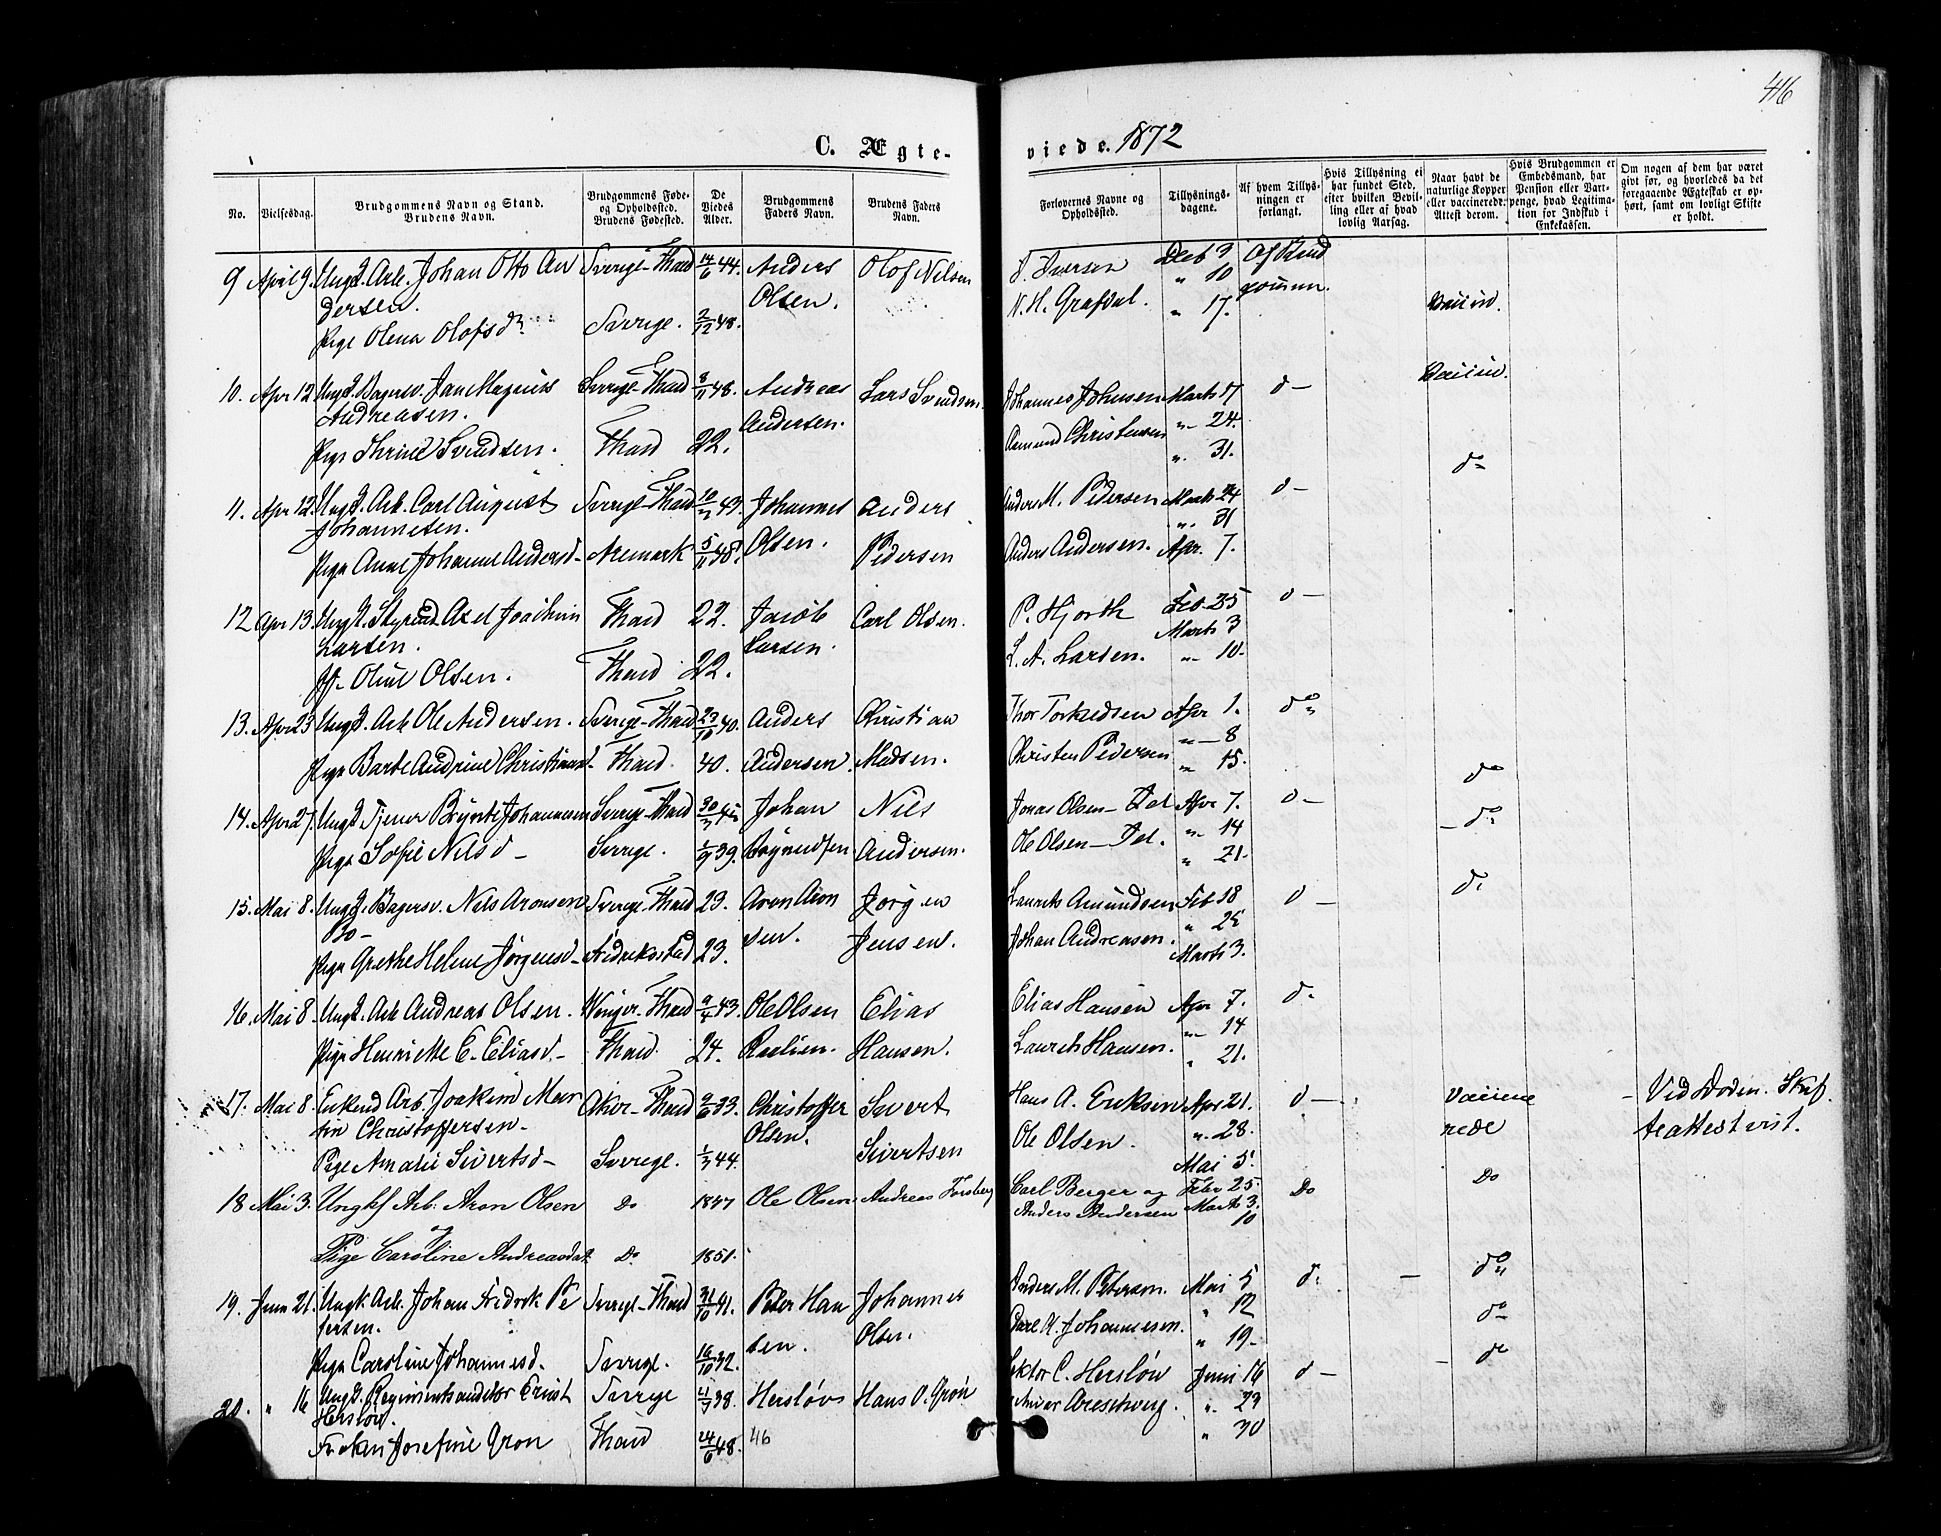 416
C. Ægte-
viede. 1872
No.
Vielsesdag.
Brudgommens Navn og Stand.
Brudens Navn.
Brudgommens Føde-
og Opholdssted.
Brudens Fødested.
De
Viedes
Alder.
Brudgommens
Faders Navn.
Brudens Faders
Navn.
Forlovernes Navne og
Opholdssted.
Tillysnings-
dagene.
Af hvem Tillys-
ningen er
forlangt.
Hvis Tillysning ei
har fundet Sted,
efter hvilken Bevil-
ling eller af hvad
lovlig Aarsag.
Naar havt de
naturlige Kopper
eller vaccinerede.
Attest derom.
Hvis Brudgommen er
Embedsmand, har
Pension eller Vart-
penge, hvad Legitima-
tion for Indskud i
Enkekassen.
Om nogen af dem har været
givt før, og hvorledes da det
foregaaende Ægteskab er op-
hørt, samt om lovligt Skifte
er holdt.
9 April 9. Ungk. Arb. Johan Otto An Sverige-Thand 14/6 44. Anders Olof Nilsen Iversen Deeb 3 Af Brud
dersen. Olsen. N. H. Grafdal. " 10 gommen.
Pige Olena Olofsd Sverige. 2/12 48. " 17. Vaccind.
10. Apr 12 Ungk. Bagersv. Jan Magnus Sverige-Thand 8/11 48. Andreas Lars Svendsen. Johannes Johnsen Marts 17 d- Vaccind.
Andreasen. Andersen. Christensen " 24.
Pige Thrine Svendsen. Thand 22. " 31.
11. Apr 12. Ungk. Arb. Carl August Sverige-Thand 43. Johannes Anders Anders M. Pedersen Marts 24 d- do
Johannesen. Olsen. Pedersen " 31
Pige Anne Johanne Andersd- Aremark 5/11 48. Anders Andersen. Apr. 7.
12 Apr 13. Ungk. Axel Joachim Thand 22. Jacob Carl Olsen. P. Hjorth Feb 25 d-
Larsen. Larsen. Marts 3
Oline Olsen. Thand 22. L. A. Larsen. " 10.
13. Apr 23 Ungk. Arb Ole Andersen. Sverige-Thand 23/10 40. Anders Christian Apr 1. do
Pige Andrine Christiansd- Thand. 40. Andersen. Madsen. Christen Pedersen " 8
" 15. do
14. Apr 27. Ungk. Tjener Johannesen Sverige-Thand 30/3 45 Johan Nils Jonas Olsen- Apr 7. d- do
Pige Sofie Nilsd- Sverige. 1/9 39. Andersen. Ole Olsen- " 14
" 21.
15. Mai 8. Ungk. Bagersv. Nils Aronsen Sverige-Thand 23. Aron Aron Jørgen Laurits Amundsen Feb 18 d- do
sen. Jensen. Johan Andreasen. " 25
Pige Grethe Helene Jørgensd- Fredrikstad 23. Marts 3.
16. Mai 8. Ungk. Arb Andreas Olsen. Winger-Thand 9/4 43. Ole Olsen Elias Elias Hansen Apr 7. d-
Pige Henriette E. Eliasd- Thand. 24. Hansen. Laurits Hansen. " 14
" 21.
17. Mai 8. Enkemd Arb. Joakim Mar Aker-Thand 9/6 33. Christoffer Sivert Hans A. Eriksen Apr 21. d- Vaccine Ved Døden. Skif
tin Christoffersen- Olsen. Sivertsen Ole Olsen. " 28. rede teattest vist.
Pige Amalie Sivertsd- Sverige. 1/3 44. Mai 5.
18 Mai 3. Ungkf Arb: Aron Olsen Do 1847 Ole Olsen Andreas Forsberg Carl Berger og Febr 25. Do Do
og Anders Andersen Marts 3.
Pige Caroline Andreasdat Do 1851. 10
19. Juni 21. Ungk. Arb. Johan Fredrik Pe Sverige-Thand 31/10 41. Peter Han Johannes Anders M. Peterson. Mai 5 d- do
tersen. sen. Olsen. Carl A. Johannesen. " 12 do
Pige Caroline Johannesd. Sverige. 16/10 32. " 19-
20. " 16 Ungk. Ernst Sverige 4/7 38. Hersløvs Hans O. Grøn C. Hersløw Juni 16 d- do
Hersløv. Areschoug. " 23
Frøken Josefine Grøn Thand 24/6 48. 46 " 30